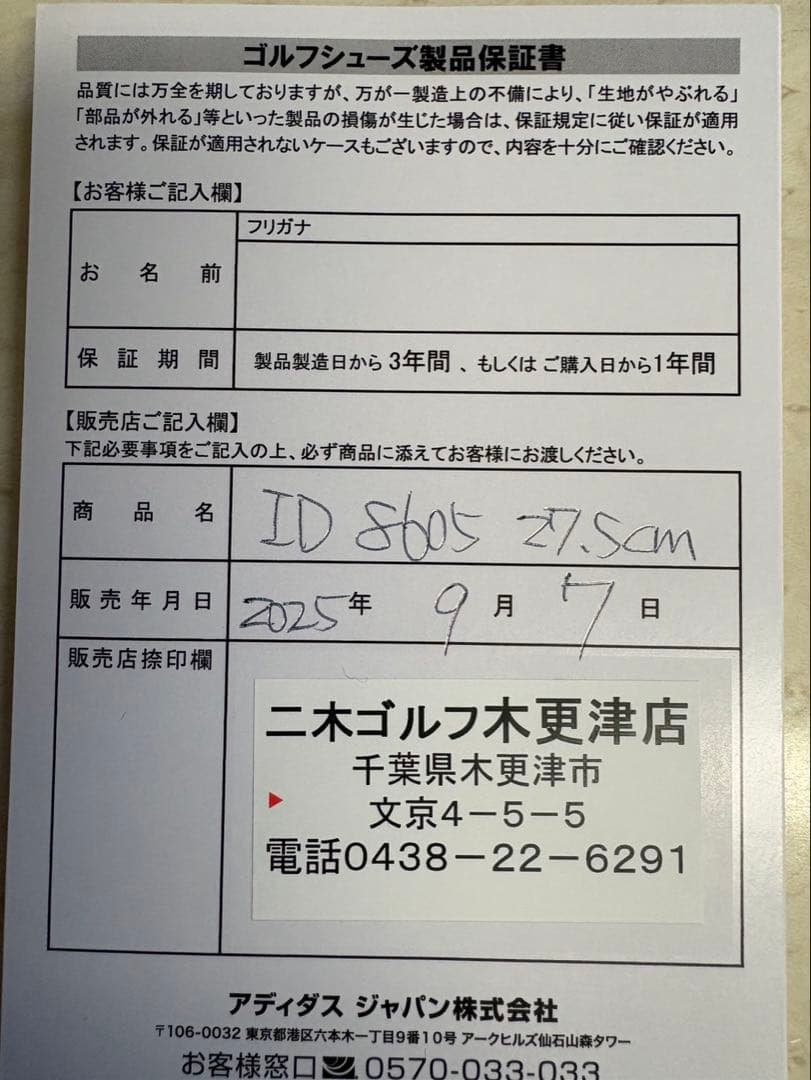 ゴルフシューズ製品保証書
品質には万全を期しておりますが、万が一製造上の不備により、「生地がやぶれる」
「部品が外れる」等といった製品の損傷が生じた場合は、保証規定に従い保証が適用
されます。保証が適用されないケースもございますので、内容を十分にご確認ください。
【お客様ご記入欄】
フリガナ
お名前
保証期間 製品製造日から3年間、もしくはご購入日から1年間
【販売店ご記入欄】
下記必要事項をご記入の上、必ず商品に添えてお客様にお渡しください。
商品名 ID 8605 27.5cm
販売年月日 2025年 9月 7日
販売店捺印欄
二木ゴルフ木更津店
千葉県木更津市
文京4－5－5
電話0438－22－6291
アディダス ジャパン株式会社
〒106-0032 東京都港区六本木一丁目9番10号 アークヒルズ仙石山森タワー
お客様窓口 0570-033-033